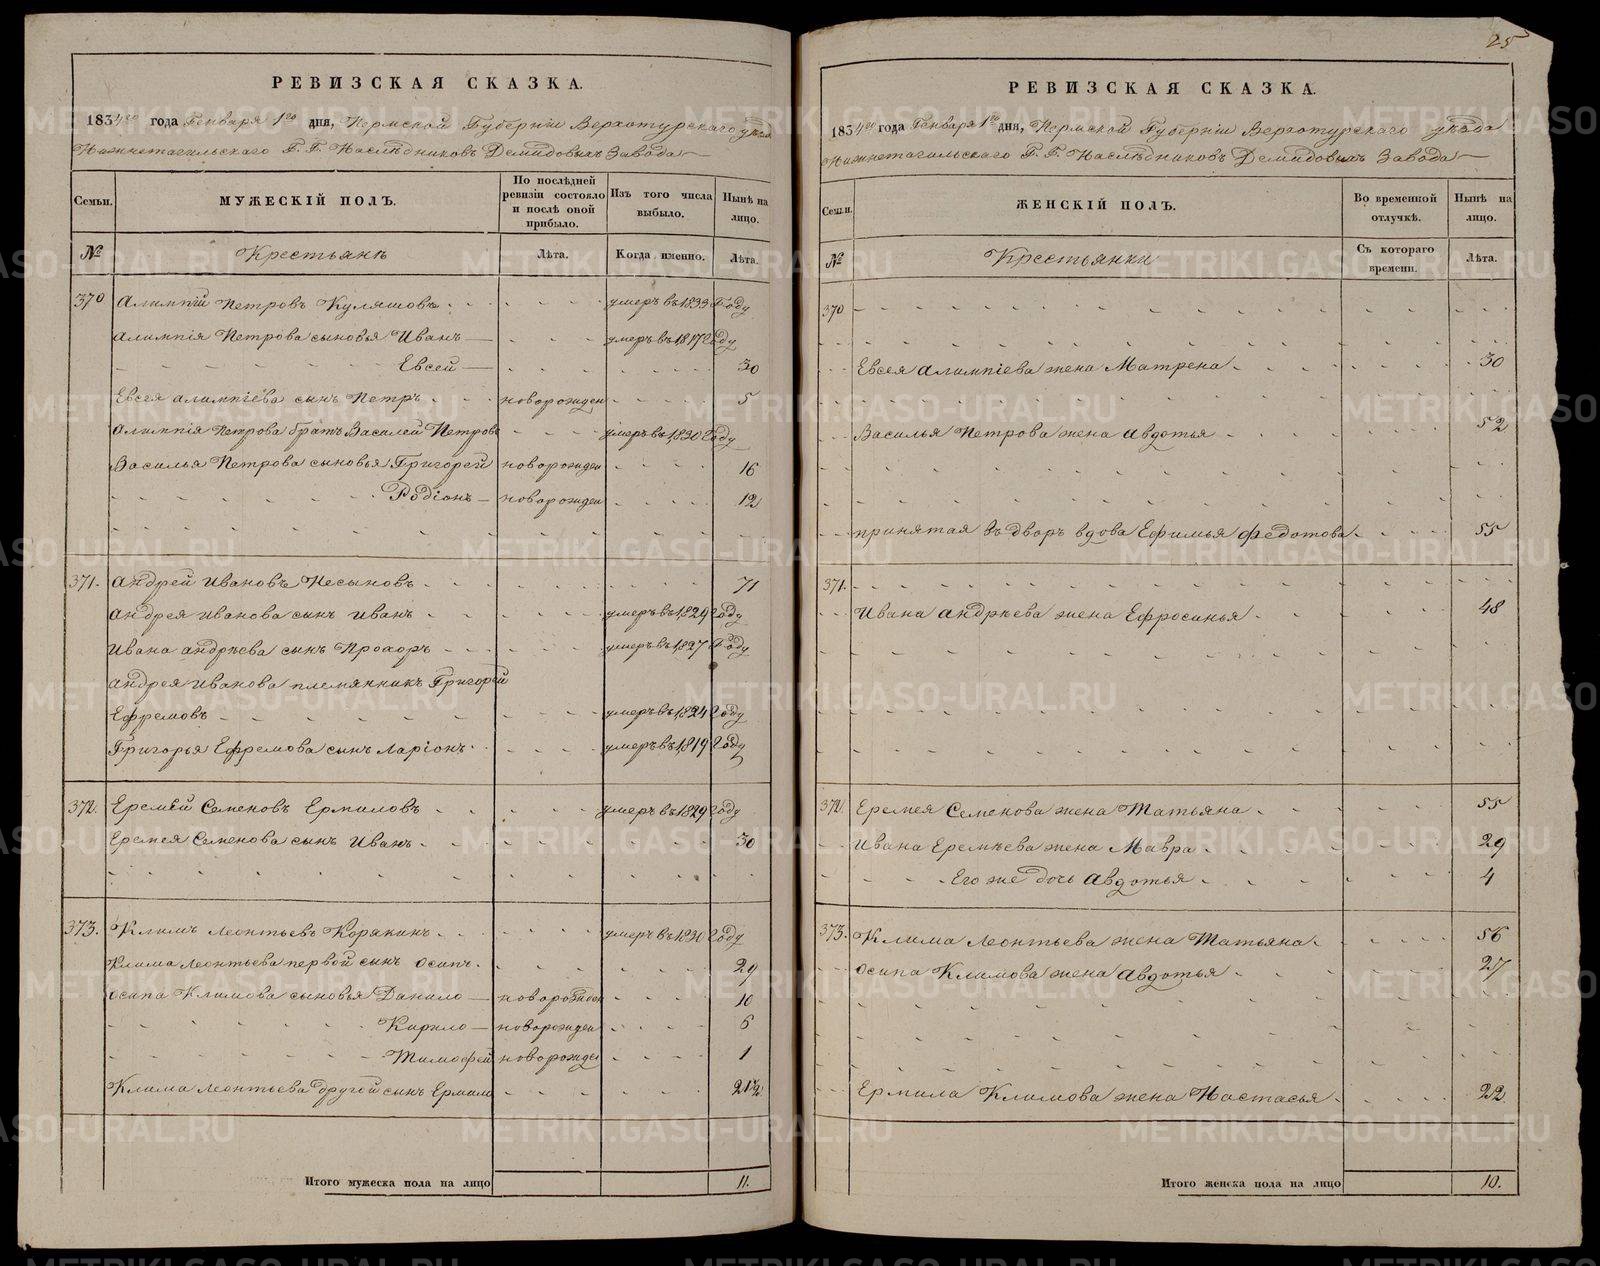 РЕВИЗСКАЯ СКАЗКА.
1834го года Генваря 1го дня, Пермской Губерніи Верхотурскаго уѣзда
Нижнетагильскаго Г. Г. Наслѣдниковъ Демидовыхъ Завода
Семьи.
МУЖЕСКІЙ ПОЛЪ.
По послѣдней ревизіи состояло и послѣ оной прибыло.
Изъ того числа выбыло.
Нынѣ на лицо.
№
Крестьянъ
Лѣта.
Когда именно.
Лѣта.
370 Алимпій Петровъ Куляшовъ умеръ въ 1833 Году
Алимпія Петрова сыновья Иванъ умеръ въ 1817 Году
Евсей 30
Евсея Алимпіева сынъ Петръ новорожден 5
Алимпія Петрова братъ Василей Петровъ умеръ въ 1830 Году
Василья Петрова сыновья Григорей новорожден 16
Родіонъ новорожден 12
371. Андрей Ивановъ Несыновъ 71
Андрея Иванова сынъ Иванъ умеръ въ 1829 Году
Ивана Андрѣева сынъ Прохоръ умеръ въ 1827 Году
Андрея Иванова племянникъ Григорей
Ефремовъ умеръ въ 1824 Году
Григорья Ефремова сынъ Ларіонъ умеръ въ 1819 Году
372. Еремѣй Семеновъ Ермиловъ умеръ въ 1829 Году
Еремея Семенова сынъ Иванъ 30
373. Климъ Леонтьевъ Коракинъ умеръ въ Году
Клима Леонтьева первой сынъ Осипъ 29
Осипа Климова сыновья Данило новорожден 10
Кирило новорожден 6
Тимофей новорожде 1
Клима Леонтьева другой сынъ Ермило 21½
Итого мужеска пола на лицо 11.
25
РЕВИЗСКАЯ СКАЗКА.
1834го года Генваря 1го дня, Пермской Губерніи Верхотурскаго уѣзда
Нижнетагильскаго Г. Г. Наслѣдниковъ Демидовыхъ Завода
Семьи.
ЖЕНСКІЙ ПОЛЪ.
Во временной отлучкѣ.
Нынѣ на лицо.
№
Крестьянки
Съ котораго времени.
Лѣта.
370
Евсея Алимпіева жена Матрена 30
Василья Петрова жена Авдотья 52
принятая въ дворъ вдова Ефимья Федотова 55
371.
Ивана Андрѣева жена Ефросинья 48
372. Еремея Семенова жена Татьяна 55
Ивана Еремѣева жена Мавра 29
Его же дочь Авдотья 4
373. Клима Леонтьева жена Татьяна 56
Осипа Климова жена Авдотья 27
Ермила Климова жена Настасья 22.
Итого женска пола на лицо 10.
METRIKI.GASO-URAL.RU